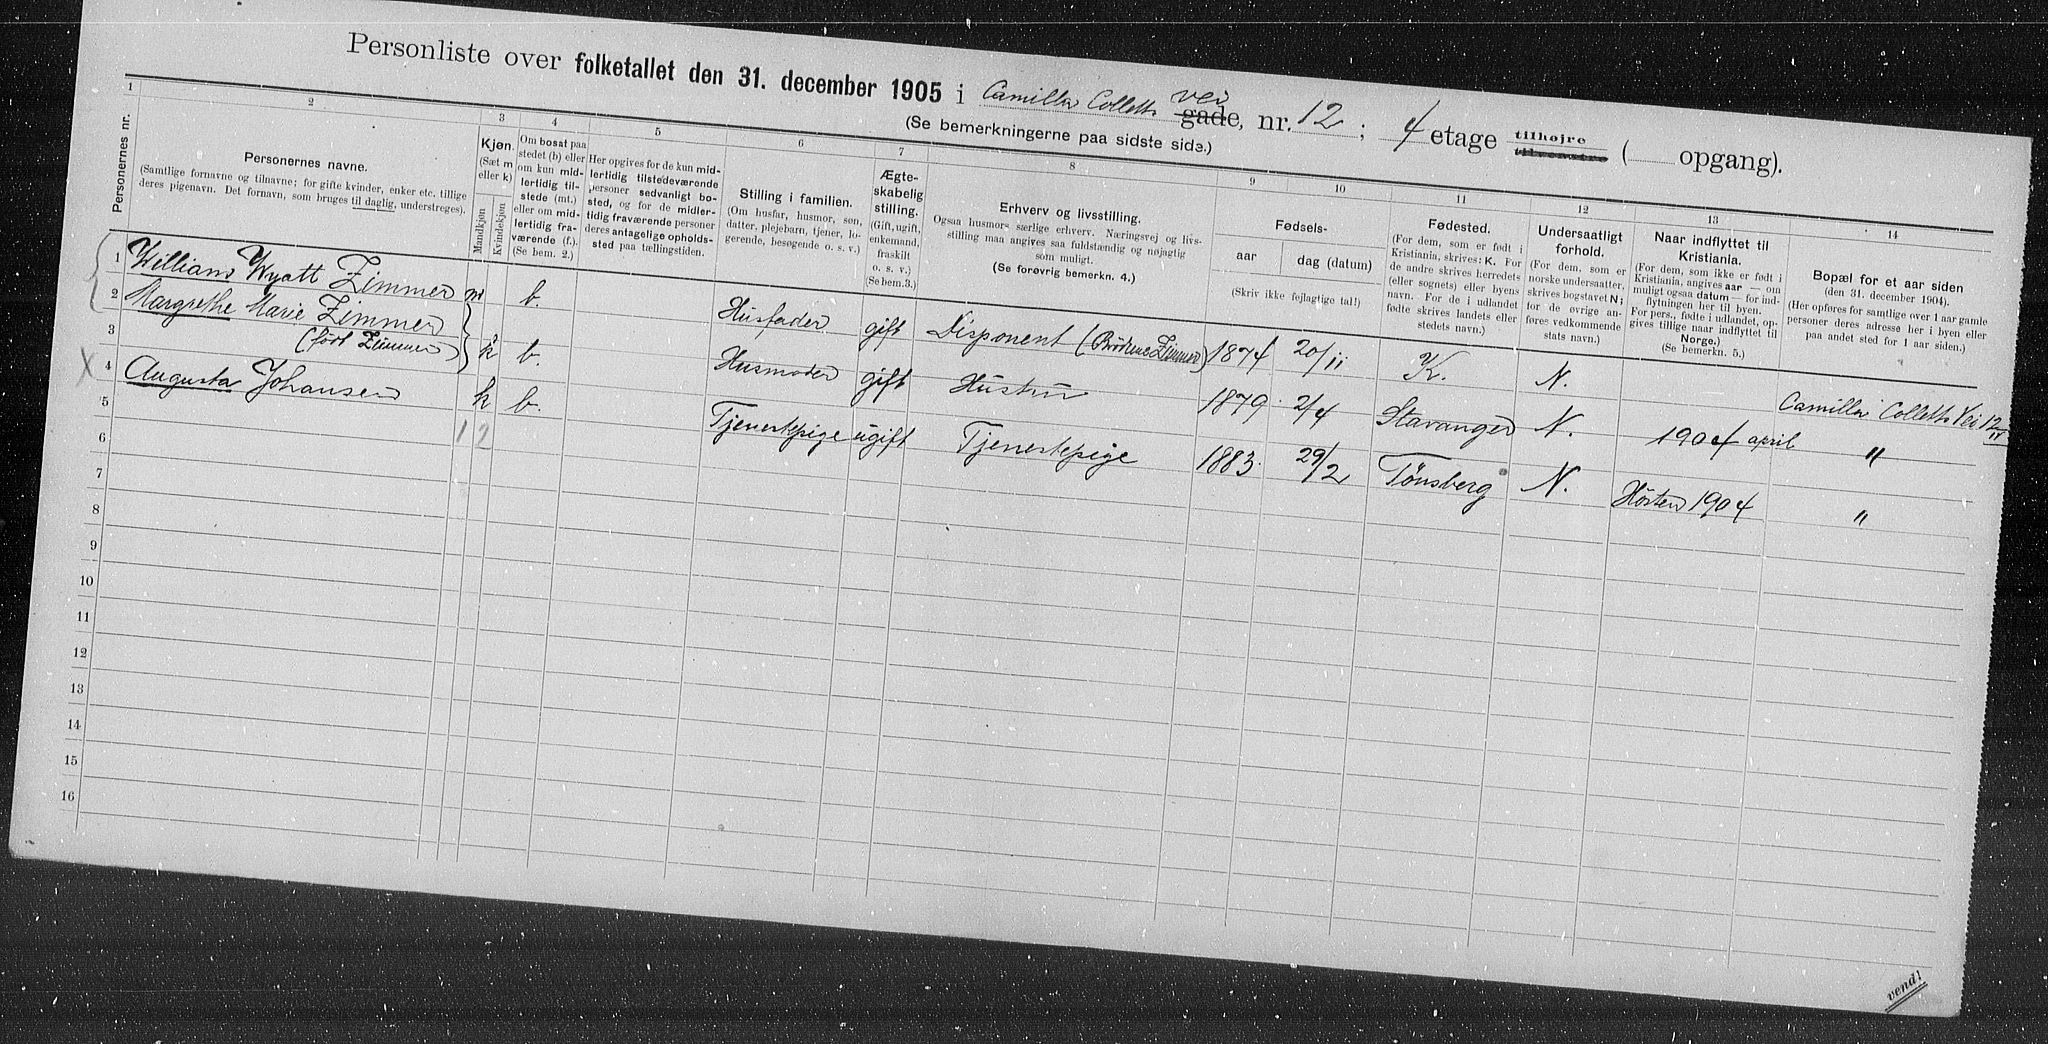 Personliste over folketallet den 31. december 1905 i Camilla Colletts vei gade, nr. 12; 4 etage tilhøjre tilvenstre ( opgang).
(Se bemerkningerne paa sidste side.)
1 2 3 4 5 6 7 8 9 10 11 12 13 14
Personernes nr.
Personernes navne.
(Samtlige fornavne og tilnavne; for gifte kvinder, enker etc. tillige
deres pigenavn. Det fornavn, som bruges til daglig, understreges).
Kjøn.
(Sæt m
eller k)
Mandkjøn
Kvindekjøn
Om bosat paa
stedet (b) eller
om kun mid-
lertidig til-
stede (mt.)
eller om mid-
lertidig fra-
værende (f.).
(Se bem. 2.)
Her opgives for de kun mid-
lertidig tilstedeværende
personer sedvanligt bo-
sted, og for de midler-
tidig fraværende personer
deres antagelige opholds-
sted paa tællingstiden.
Stilling i familien.
(Om husfar, husmor, søn,
datter, plejebarn, tjener, lo-
gerende, besøgende o. s. v.)
Ægte-
skabelig
stilling.
(Gift, ugift,
enkemand,
fraskilt
o. s. v.)
(Se bem. 3.)
Erhverv og livsstilling.
Ogsaa husmors særlige erhverv. Næringsvej og livs-
stilling maa angives saa fuldstændig og nøjagtig
som muligt.
(Se forøvrig bemerkn. 4.)
Fødsels-
aar
dag (datum)
(Skriv ikke fejlagtige tal!)
Fødested.
(For dem, som er født i
Kristiania, skrives: K. For
de andre skrives herredets
(eller sognets) eller byens
navn. For de i udlandet
fødte skrives landets eller
stedets navn.)
Undersaatligt
forhold.
(For dem, som er
norske undersaatter,
skrives bogstavet N;
for de øvrige an-
føres vedkommende
stats navn.)
Naar indflyttet til
Kristiania.
(For dem, som ikke er født i
Kristiania, angives aar — om
muligt ogsaa datum — for ind-
flytningen her til byen.
For pers., fødte i udlandet, op-
gives tillige naar indflyttet til
Norge.)
(Se bemerkn. 5.)
Bopæl for et aar siden
(den 31. december 1904).
(Her opføres for samtlige over 1 aar gamle
personer deres adresse her i byen eller
paa andet sted for 1 aar siden.)
1 William Wyatt Zimmer m b. Husfader gift Disponent (Brødrene Zimmer) 1874 20/11 K. N. Camilla Colletts Vei 12/IV
2 Margrethe Marie Zimmer
3 (født Zimmer) k b. Husmoder gift Hustru 1879. 2/4 Stavanger N. 1904 april "
4 X Augusta Johansen k b. Tjenestepige ugift Tjenestepige 1883. 29/2 Tønsberg N. Høsten 1904 "
5 1 2
6
7
8
9
10
11
12
13
14
15
16
vend!